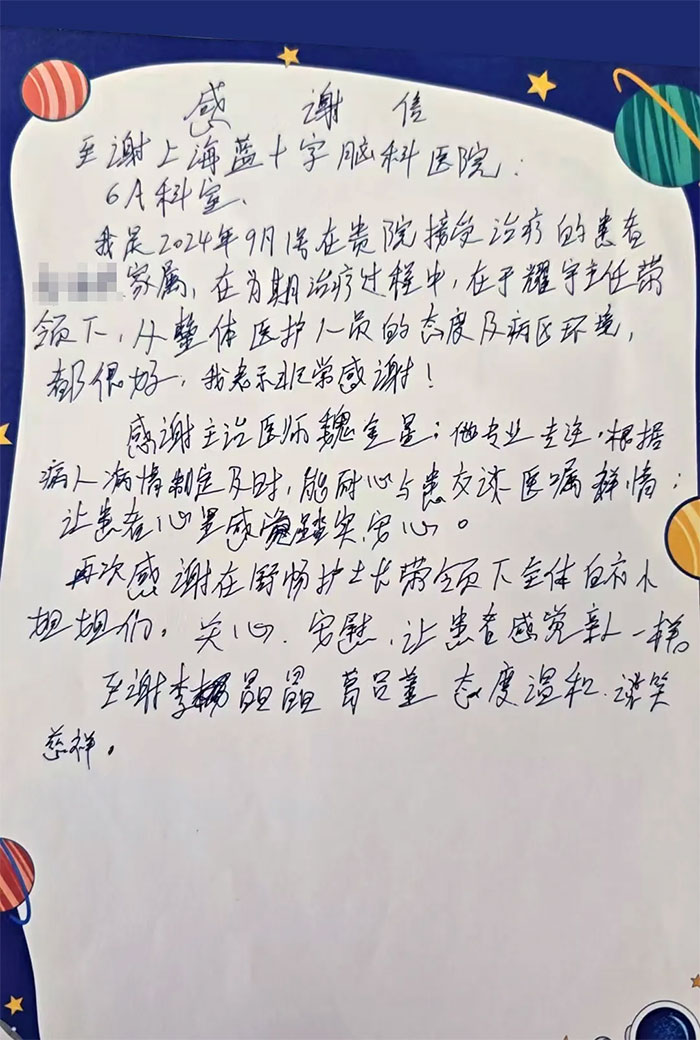 感谢信
至谢上海蓝十字脑科医院：
6A科室、
我是2024年9月 在贵院接受治疗的患者
家属，在为期治疗过程中，在于耀宇主任带
领下，从整体医护人员的态度及病区环境，
都很好，我表示非常感谢！
感谢主治医师魏金星；他专业专注，根据
病人病情制定及时，能耐心与患交谈医嘱详情；
让患者心里感觉踏实，安心。
再次感谢在舒畅护士长带领下全体白衣小
姐姐们，关心、安慰，让患者感觉亲人一样。
至谢李 晶晶 葛吕 态度温和、谈笑
慈祥。